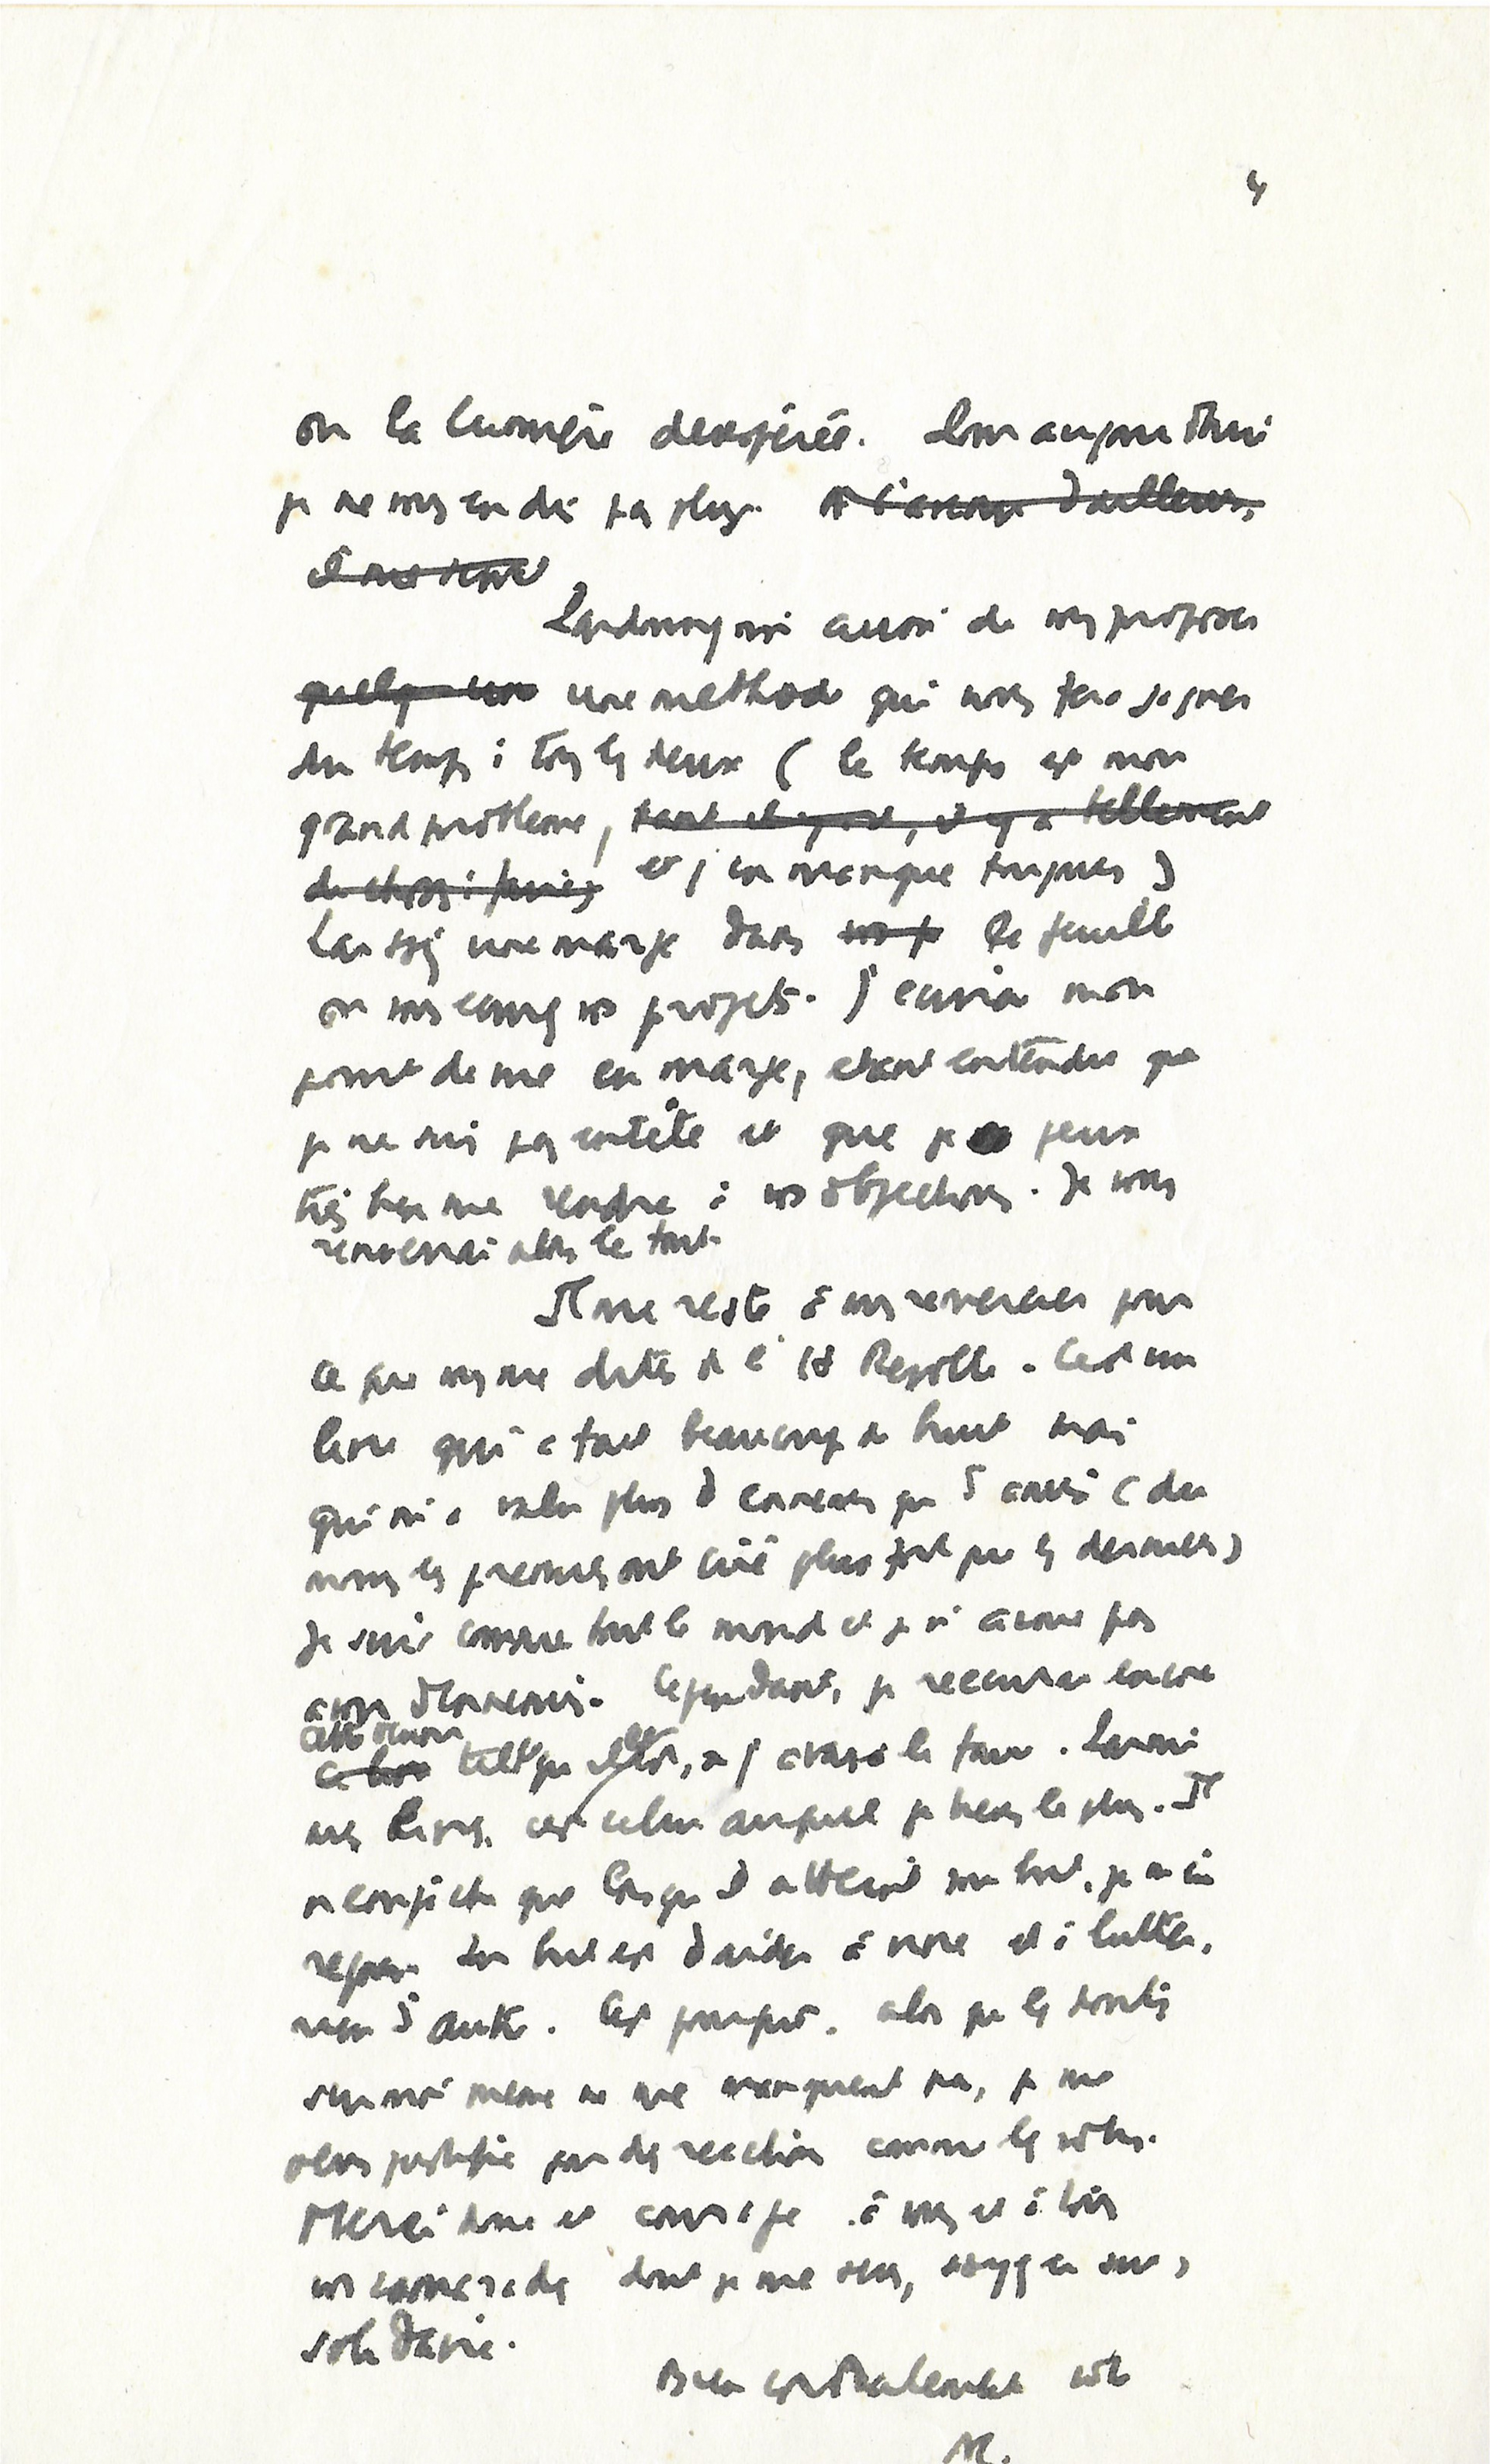 4
ou la lumière désespérée. Pour aujourd'hui
je ne vous en dis pas plus. d'ailleurs,
Pardonnez moi aussi de vous proposer
quelqu'une une méthode qui nous fera gagner
du temps à tous les deux (le temps est mon
grand problème, il y a tellement
de choses à faire, et j'en manque toujours)
Laissez une marge dans la feuille
où vous écrirez vos projets. J'écrirai mon
point de vue en marge, étant entendu que
je ne suis pas entêté et que je peux
très bien me rendre à vos objections. Je vous
renverrai alors le tout.
Il me reste à vous remercier pour
ce que vous me dites de l'H Révolté. C'est un
livre qui a fait beaucoup de bruit mais
qui m'a valu plus d'ennemis que d'amis (du
moins les premiers ont crié plus fort que les derniers)
Je suis comme tout le monde et je n'aime pas
avoir d'ennemis. Cependant, je récrirais encore
tel qu'il est, si j'avais à le faire. Parmi
mes livres, c'est celui auquel je tiens le plus. Il
que lorsqu'il atteint son but, je m'en
Son but est d'aider à vivre et à lutter,
rien d'autre. C'est pourquoi, alors que les doutes
sur moi même ne me manquent pas, je me
sens justifié par des réactions comme les vôtres.
Merci donc et courage à vous et à tous
vos camarades dont je me sens, soyez en sûr,
solidaire.
Bien cordialement vôtre